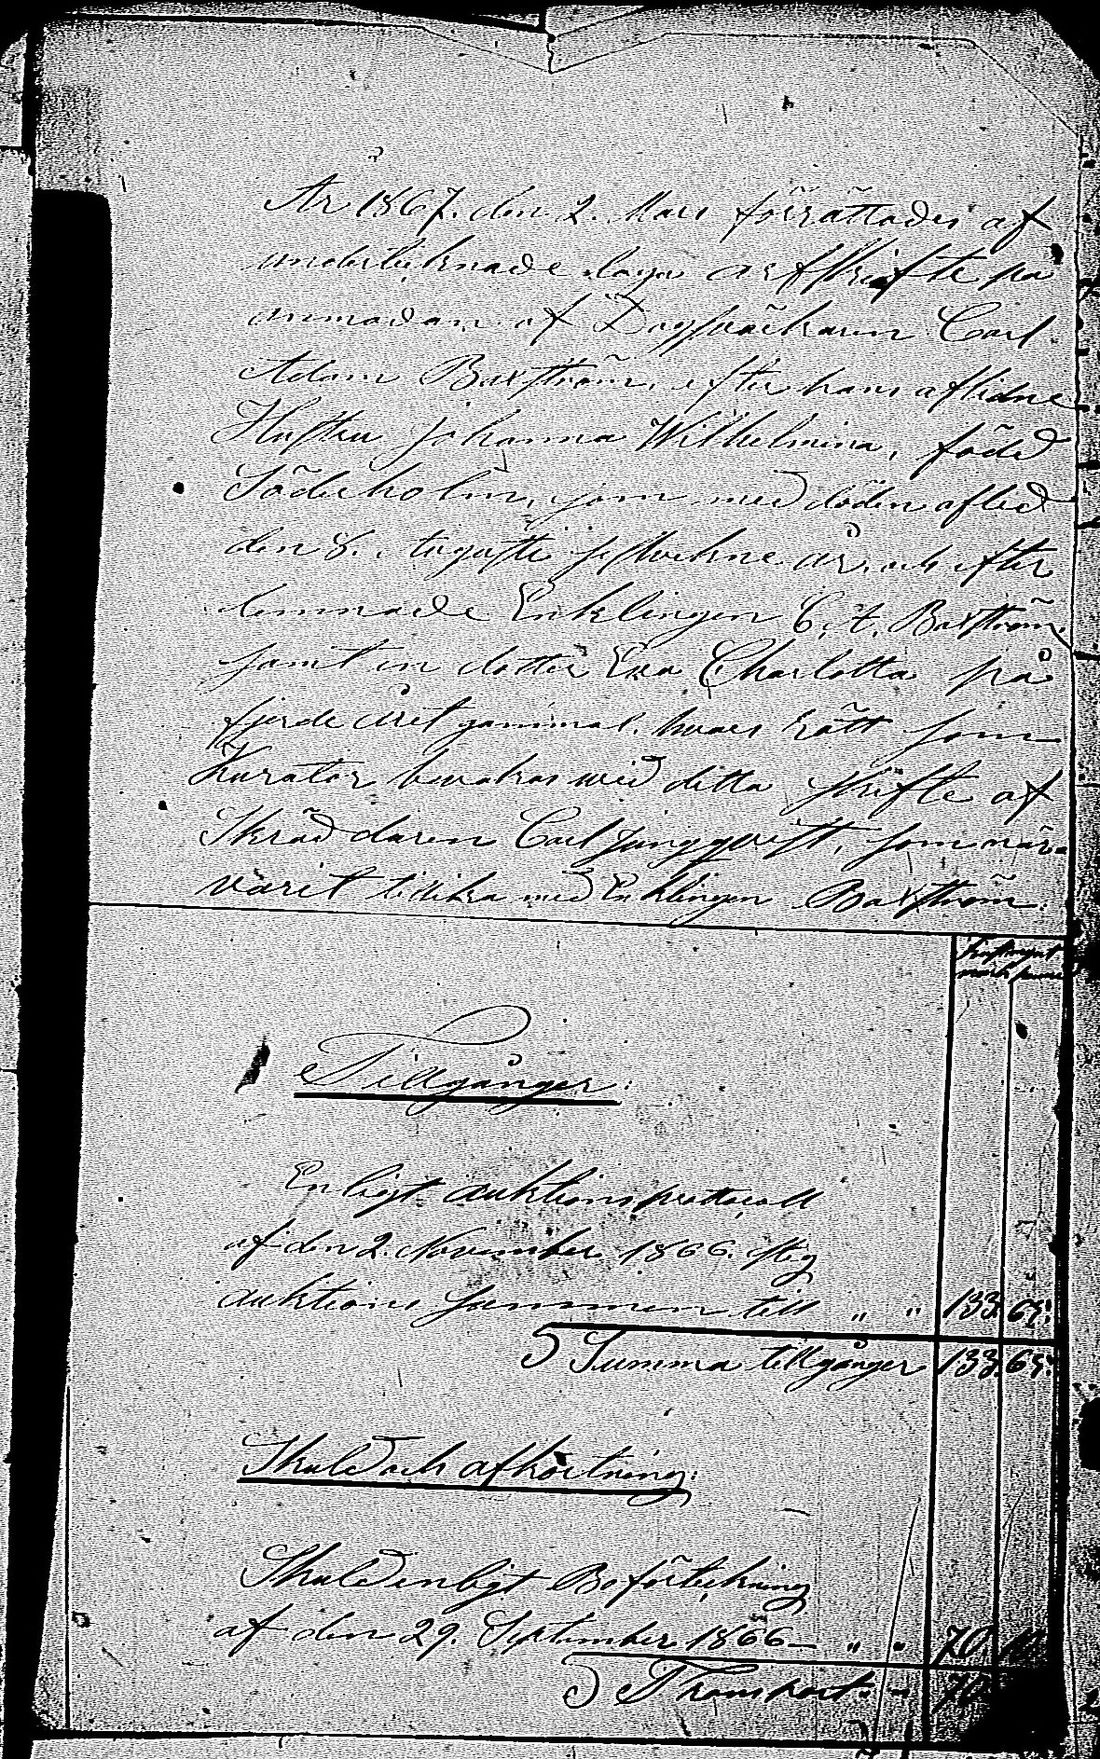 År 1867. den 2. Mars förrättades af
undertecknade laga arfskifte på
anmodan af Dagsverkaren Carl
Adam Baxström, efter hans aflidne
Hustru Johanna Wilhelmina, född
Söderholm, som med döden afled
den 8. Augusti sistvekne år, och efter
lemnade Enklingen C. A. Baxström,
samt en dotter Eva Charlotta på
fjerde året gammal, hvars rätt som
Kurator bevakas wid detta skifte af
Skräddaren Carl Jungqvist, som när-
varit tillika med Enklingen Baxström.
Tillgånger:
Enligt auktions prottocoll
af den 2. November 1866. steg
auktions summan till " " 133. 65.
S Summa tillgånger 133. 65.
Skuld och afkortning:
Skuld enligt Boförteckning
af den 29. September 1866 — " " 70
S Transport " " 70